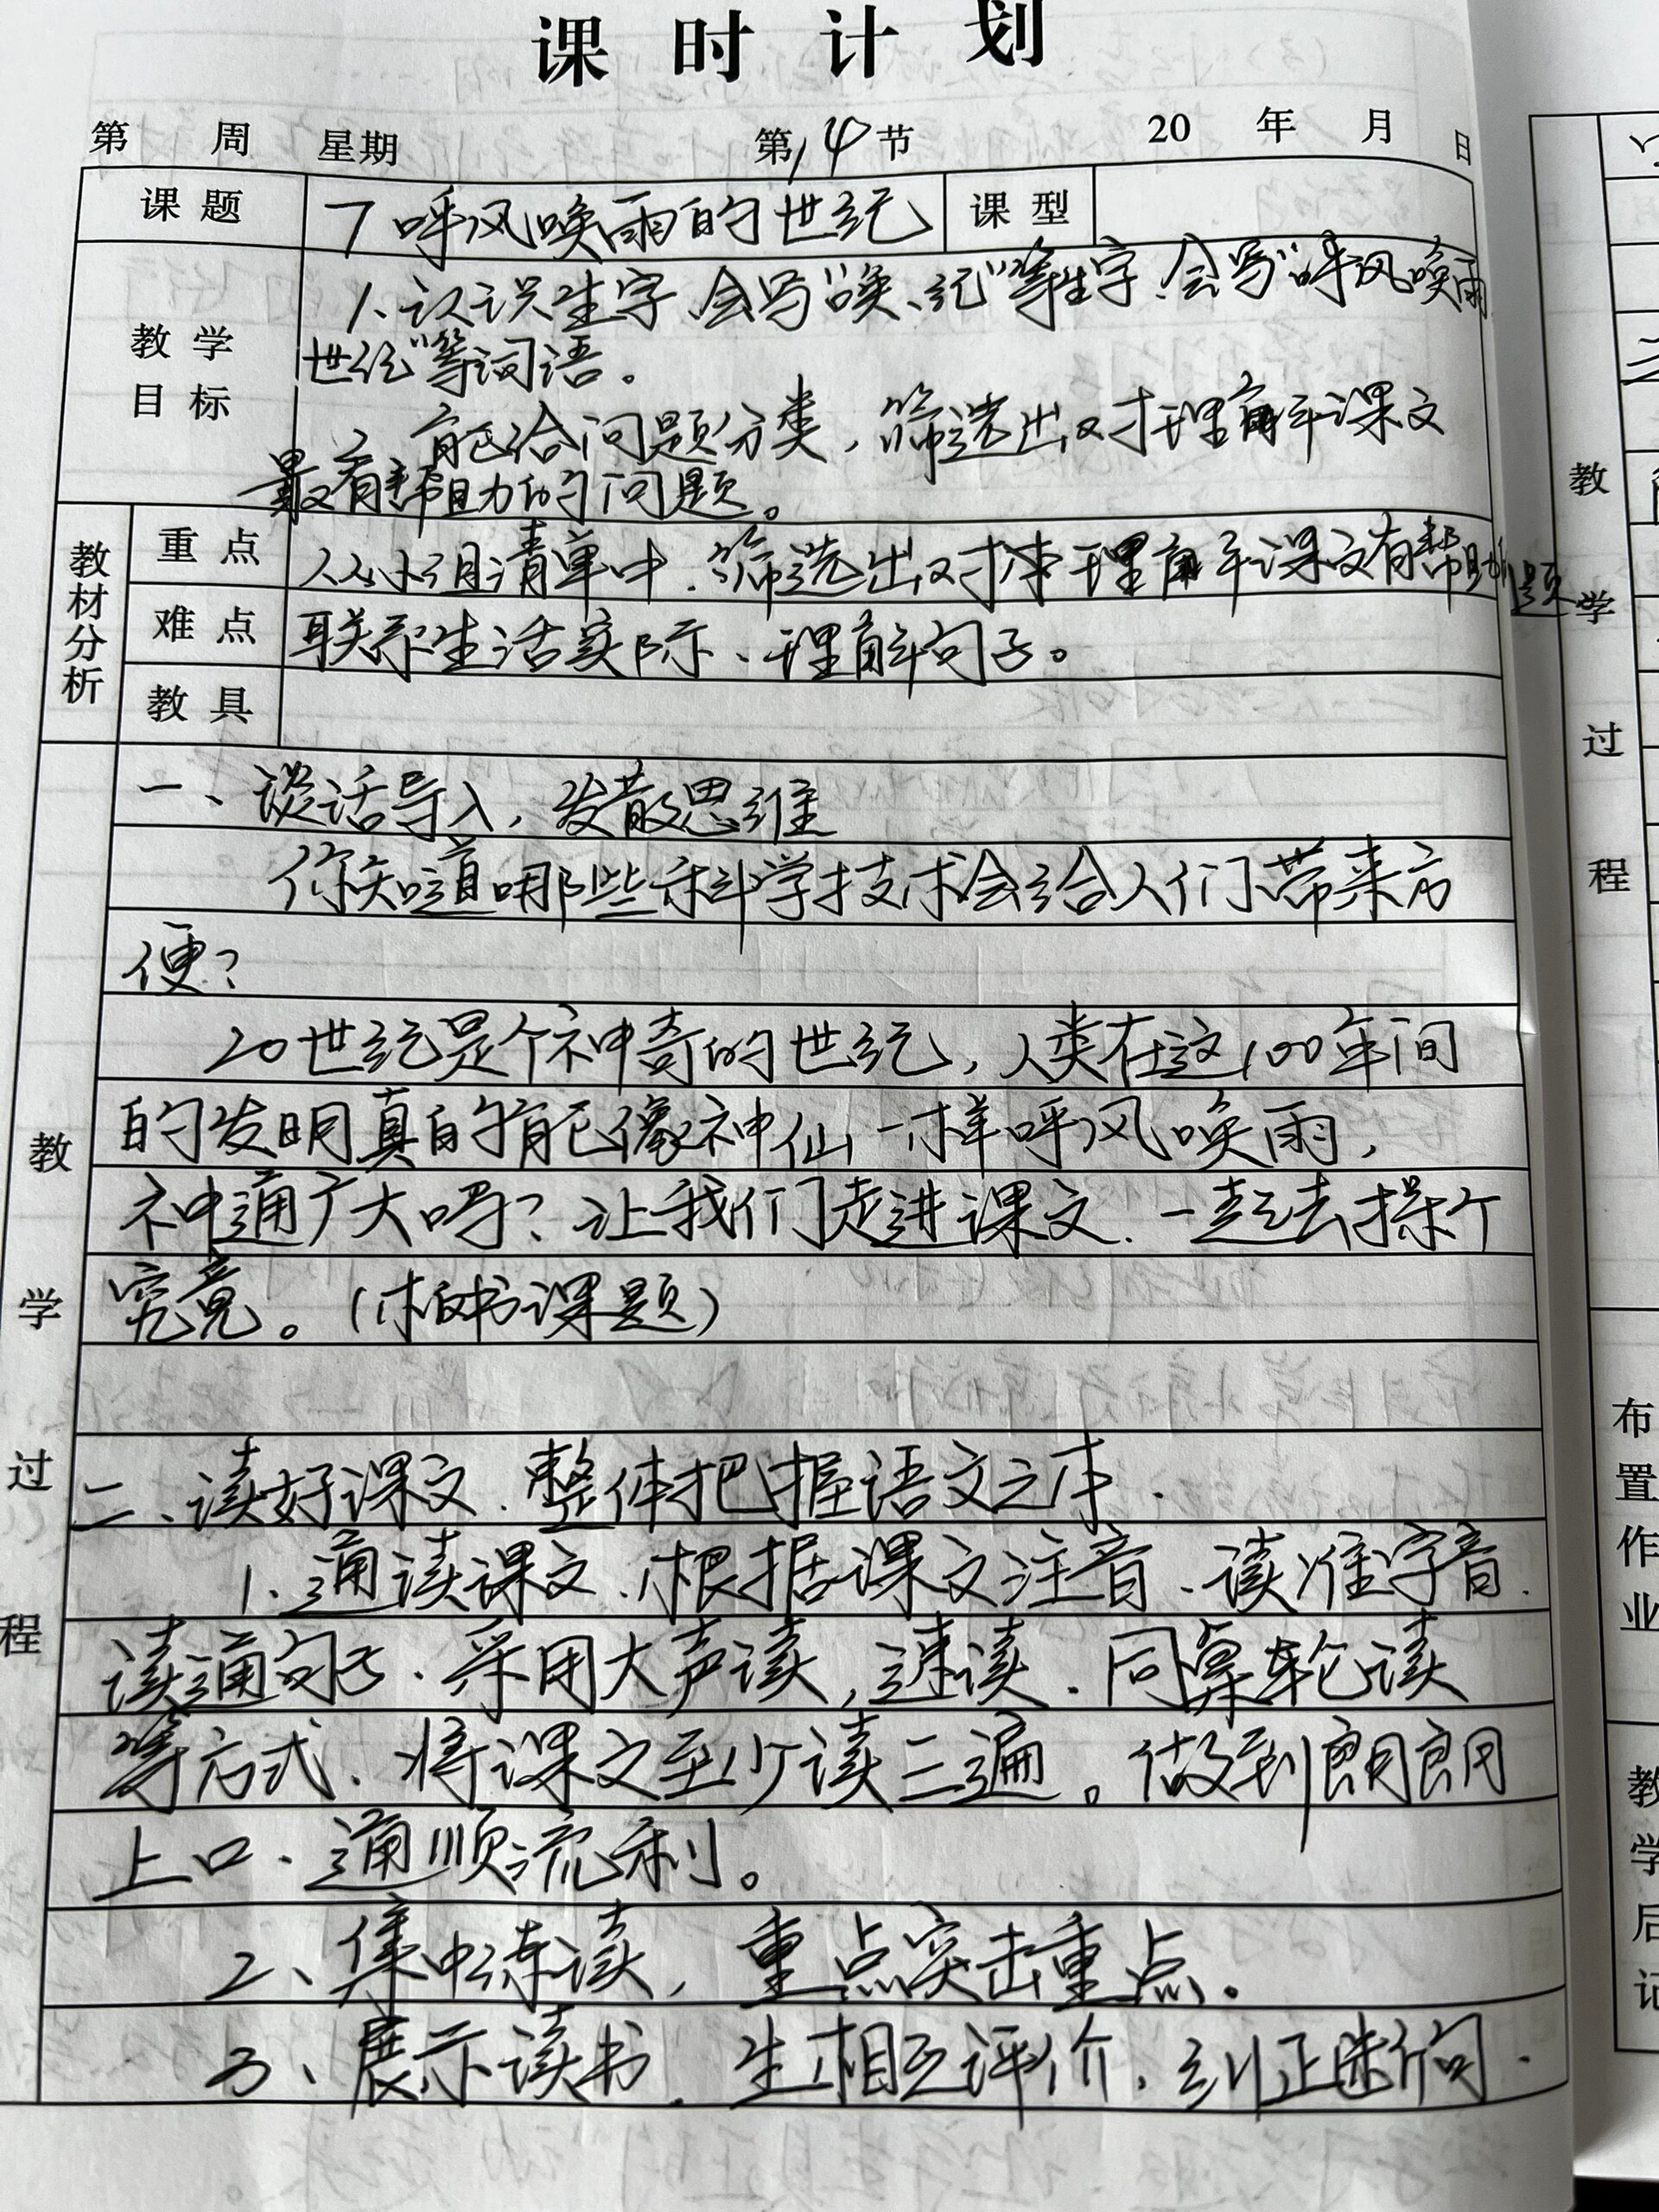 课时计划
第 周 星期 第14节 20 年 月 日
课题 7 呼风唤雨的世纪 课型
教学目标
1、认识生字、会写"唤、纪"等生字、会写"呼风唤雨
世纪"等词语。
2、能给问题分类，筛选出对理解课文
最有帮助的问题。
教材分析
重点 从小组清单中、筛选出对本理解课文有帮助的题
难点 联系生活实际、理解句子。
教具
教学过程
一、谈话导入，发散思维
你知道哪些科学技术会给人们带来方
便？
20世纪是个神奇的世纪，人类在这100年间
的发明真的能像神仙一样呼风唤雨，
神通广大吗？让我们走进课文、一起去探个
究竟。（板书课题）
二、读好课文、整体把握语文之本．
1、通读课文、根据课文注音、读准字音．
读通句子、采用大声读，速读．同桌轮读
等方式、将课文至少读三遍。做到朗朗
上口、通顺流利。
2、集中练读，重点突击重点。
3、展示读书．生相互评价，纠正
教学过程
布置作业
教学后记